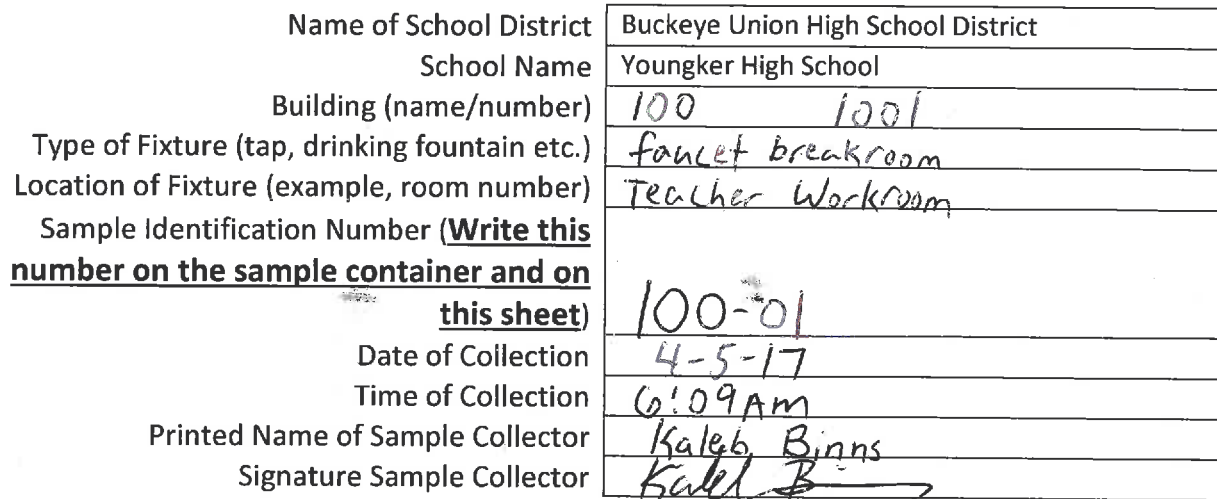 Name of School District Buckeye Union High School District
School Name Youngker High School
Building (name/number) 100 1001
Type of Fixture (tap, drinking fountain etc.) faucet breakroom
Location of Fixture (example, room number) Teacher Workroom
Sample Identification Number (Write this
number on the sample container and on
this sheet) 100-01
Date of Collection 4-5-17
Time of Collection 6:09 AM
Printed Name of Sample Collector Kaleb Binns
Signature Sample Collector Kaleb B